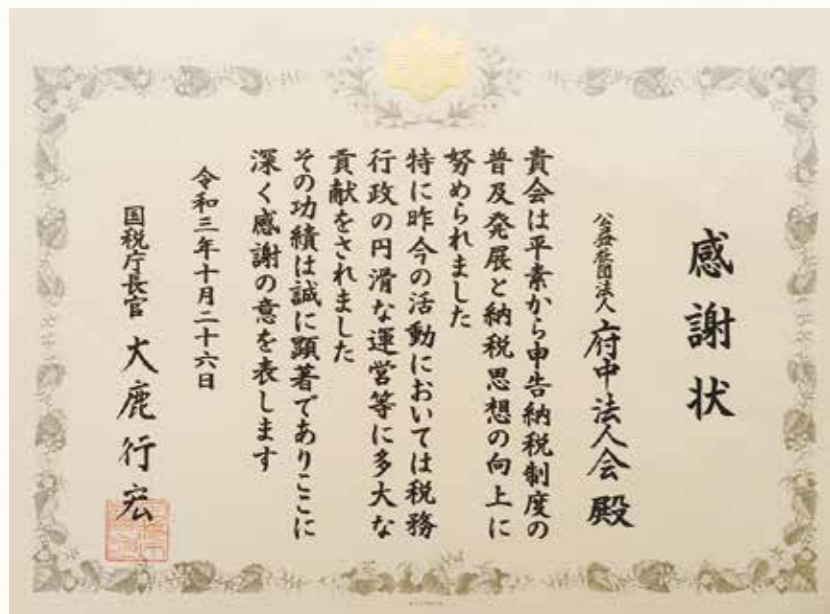 感謝状
公益社団法人 府中法人会 殿
貴会は平素から申告納税制度の
普及発展と納税思想の向上に
努められました
特に昨今の活動においては税務
行政の円滑な運営等に多大な
貢献をされました
その功績は誠に顕著でありここに
深く感謝の意を表します
令和三年十月二十六日
国税庁長官 大鹿行宏